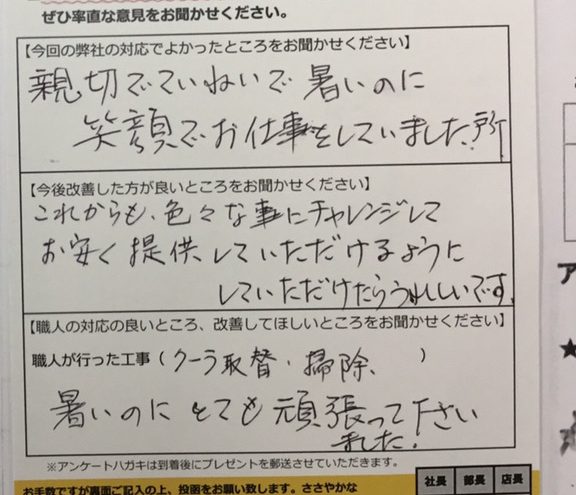 ぜひ率直な意見をお聞かせください。
【今回の弊社の対応でよかったところをお聞かせください】
親切でていねいで暑いのに
笑顔でお仕事をしていました所
【今後改善した方が良いところをお聞かせください】
これからも、色々な事にチャレンジして
お安く提供していただけるように
していただけたらうれしいです。
【職人の対応の良いところ、改善してほしいところをお聞かせください】
職人が行った工事（クーラ取替・掃除、）
暑いのにとても頑張って下さい
ました！
※アンケートハガキは到着後にプレゼントを郵送させていただきます。
お手数ですが裏面ご記入の上、投函をお願い致します。ささやかな
社長 部長 店長
ア
★